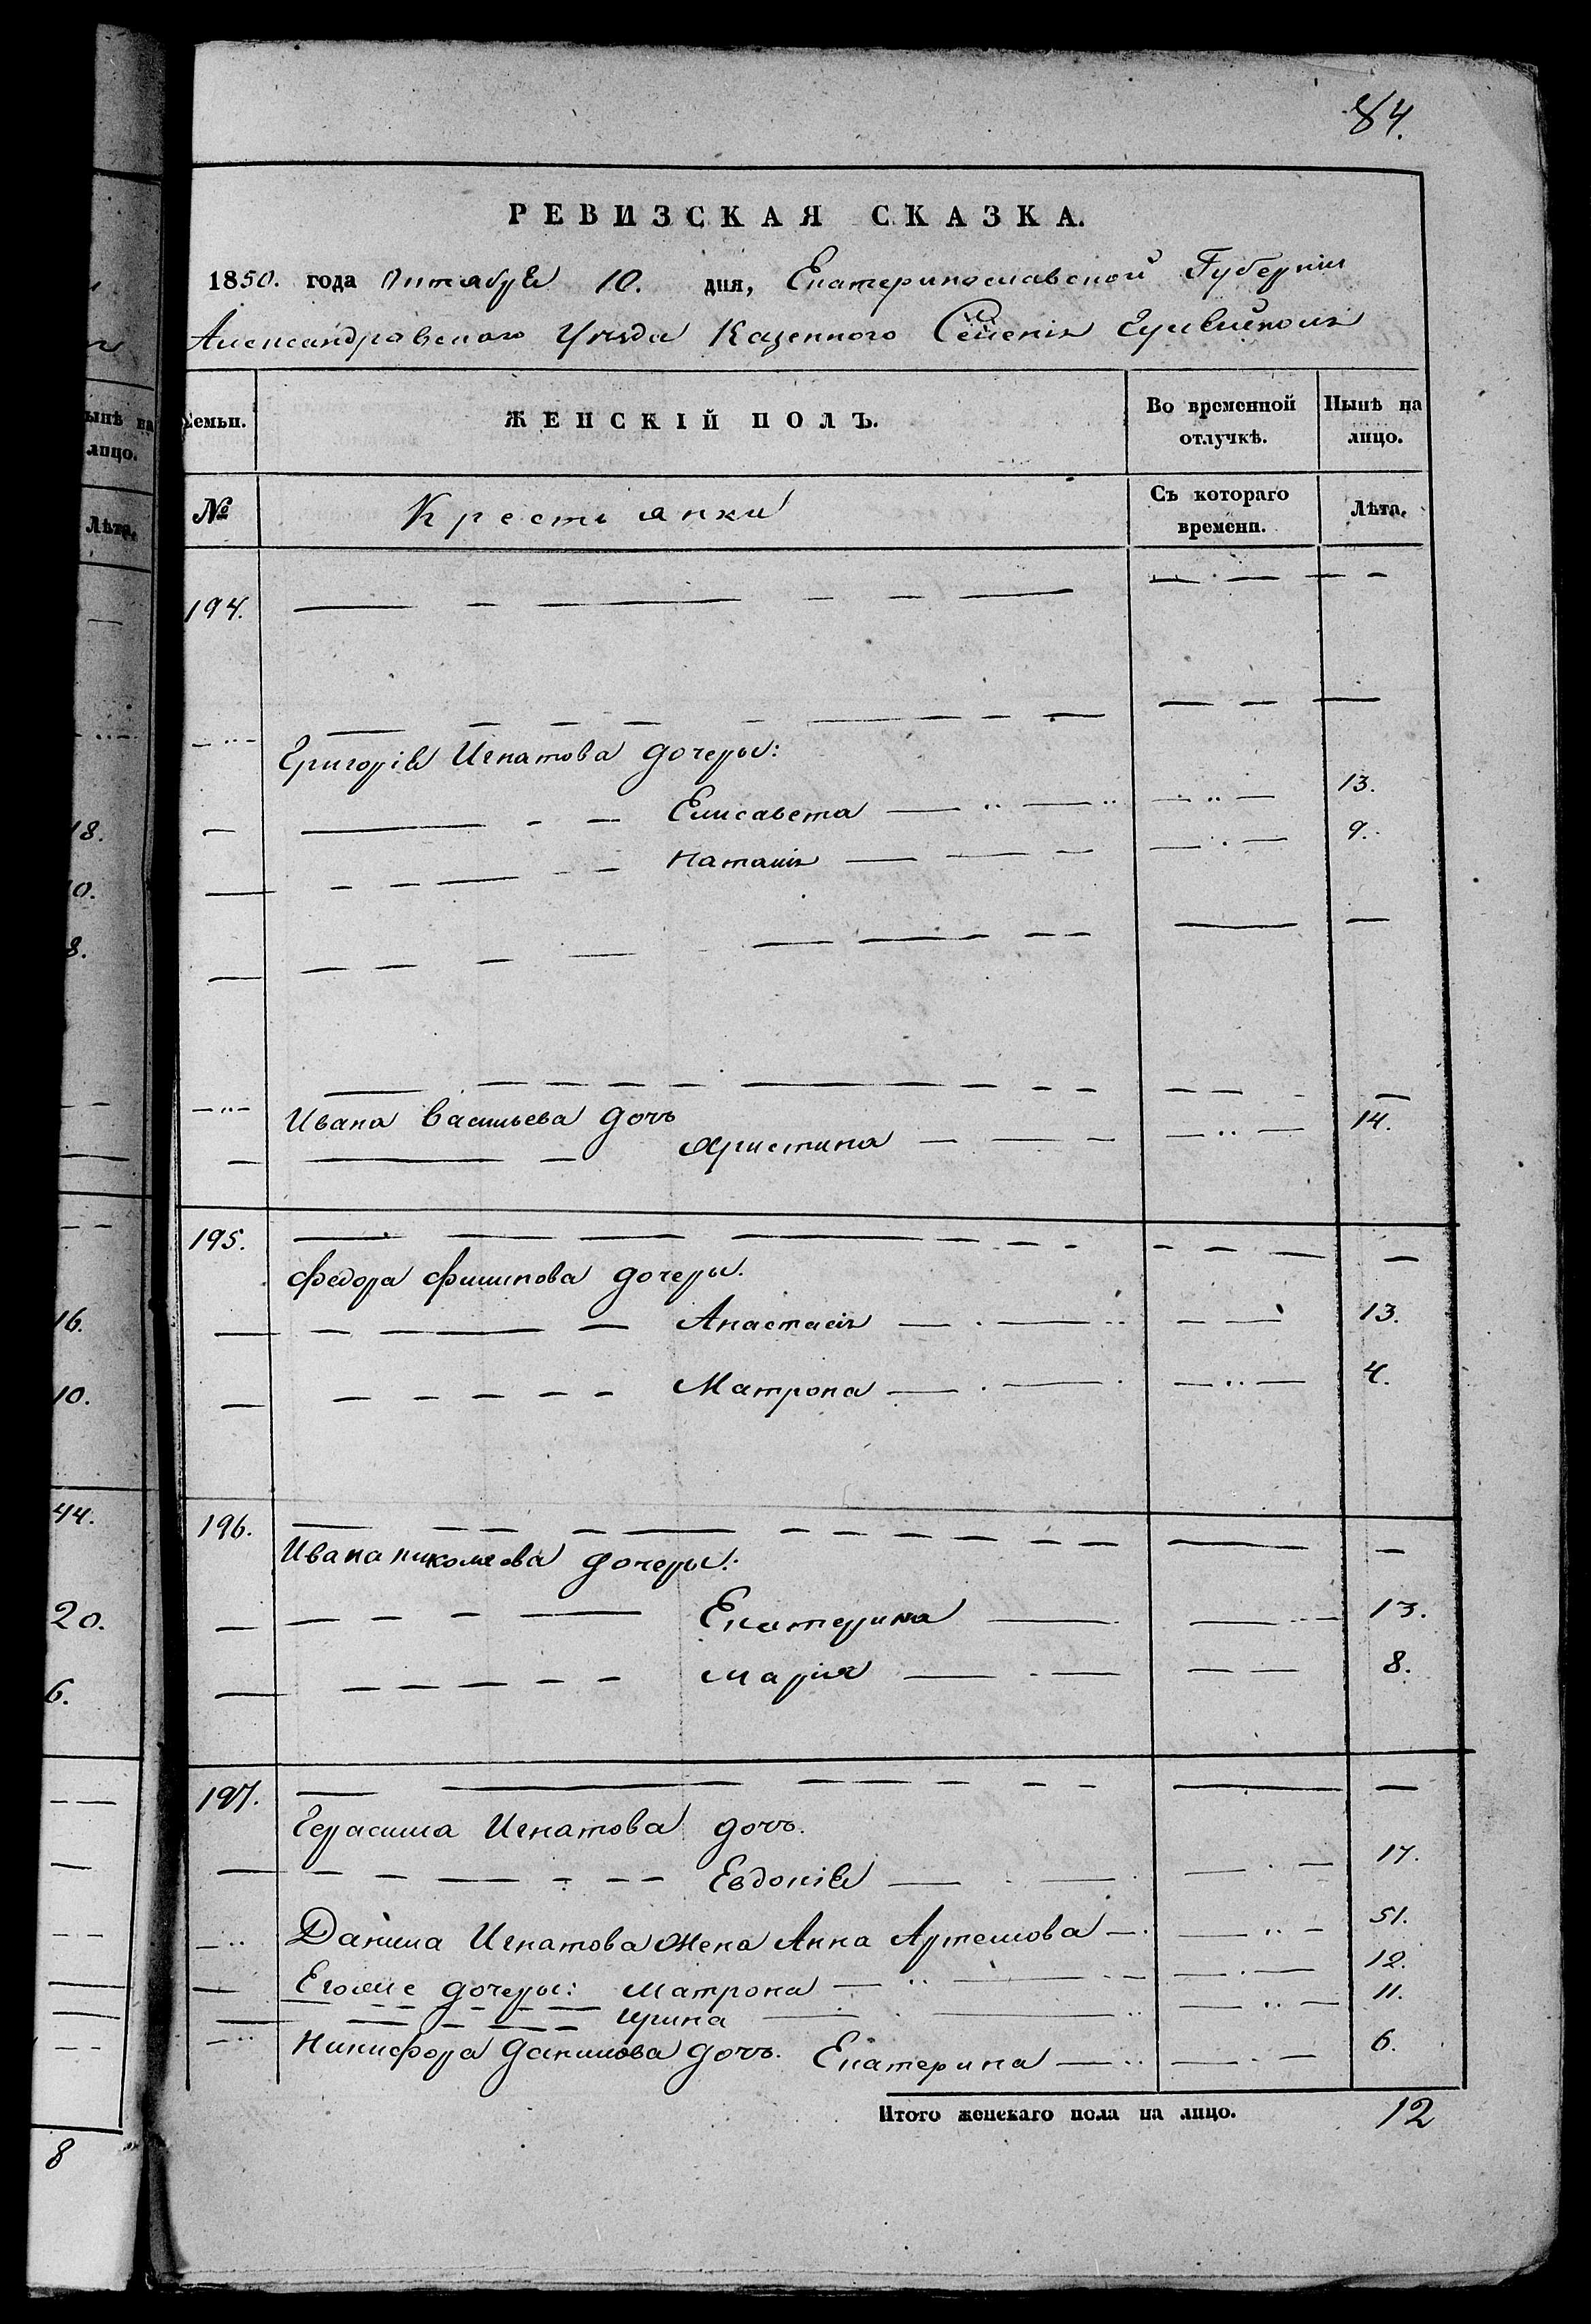 84.
РЕВИЗСКАЯ СКАЗКА.
1850. года Октября 10. дня, Екатеринославской Губерніи
Александровскаго Уѣзда Казеннаго Селенія
ынѣ на
лицо.
Лѣта.
Семьи.
ЖЕНСКІЙ ПОЛЪ.
Во временной
отлучкѣ.
Нынѣ на
лицо.
№
Крестьянки
Съ котораго
времени.
Лѣта.
194.
Григорія Игнатова дочеры:
Елисавета 13.
Наталія 9.
Ивана Васильева дочь
Христина 14.
195.
Федора Филипова дочеры.
Анастасія 13.
Матрона 4.
196.
Ивана Николаева дочеры:
Екатерина 13.
Марія 8.
197.
Герасима Игнатова дочь.
Евдокія 17.
Данила Игнатова жена Анна Артемова 51.
Его же дочеры: Матрона 12.
Ирина 11.
Никифора Данилова дочь. Екатерина 6.
Итого женскаго пола на лицо. 12
18.
10.
8.
16.
10.
44.
20.
6.
8